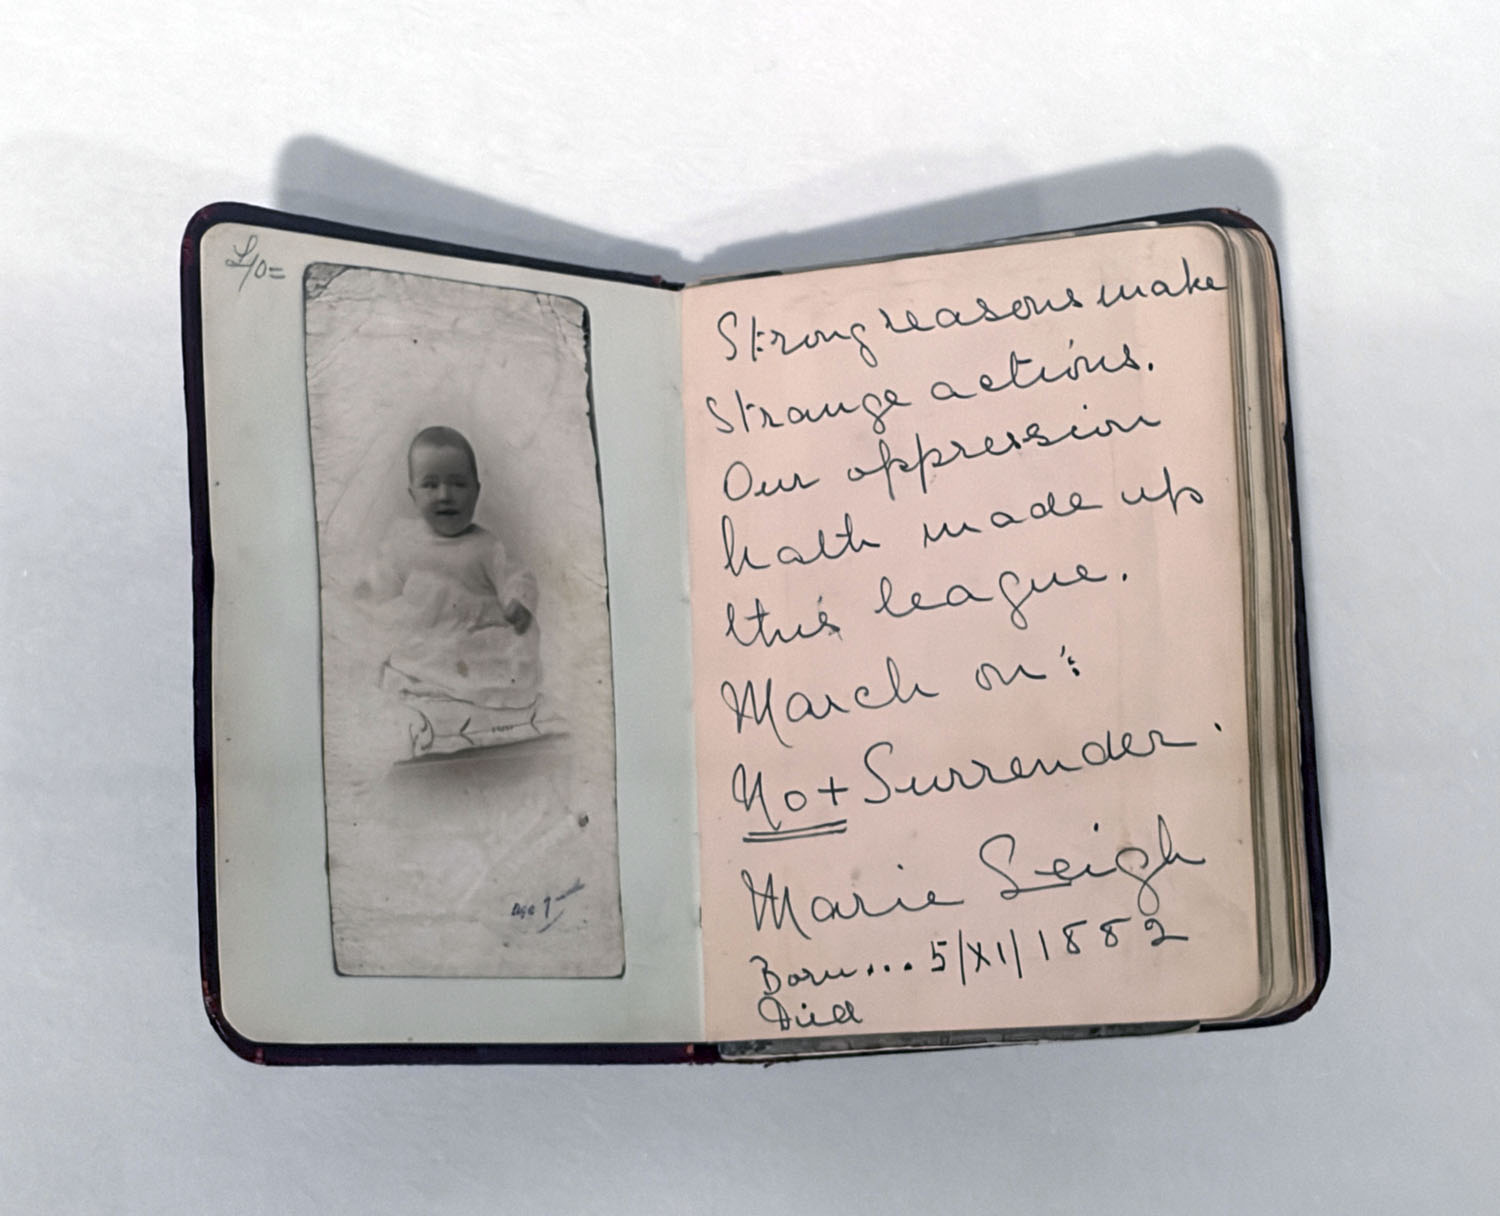 £/0=
Age 7
Strong reasons make
strange actions.
Our oppression
hath made up
this league.
March on:
No + Surrender.
Marie Leigh
Born... 5/XI/1882
Died